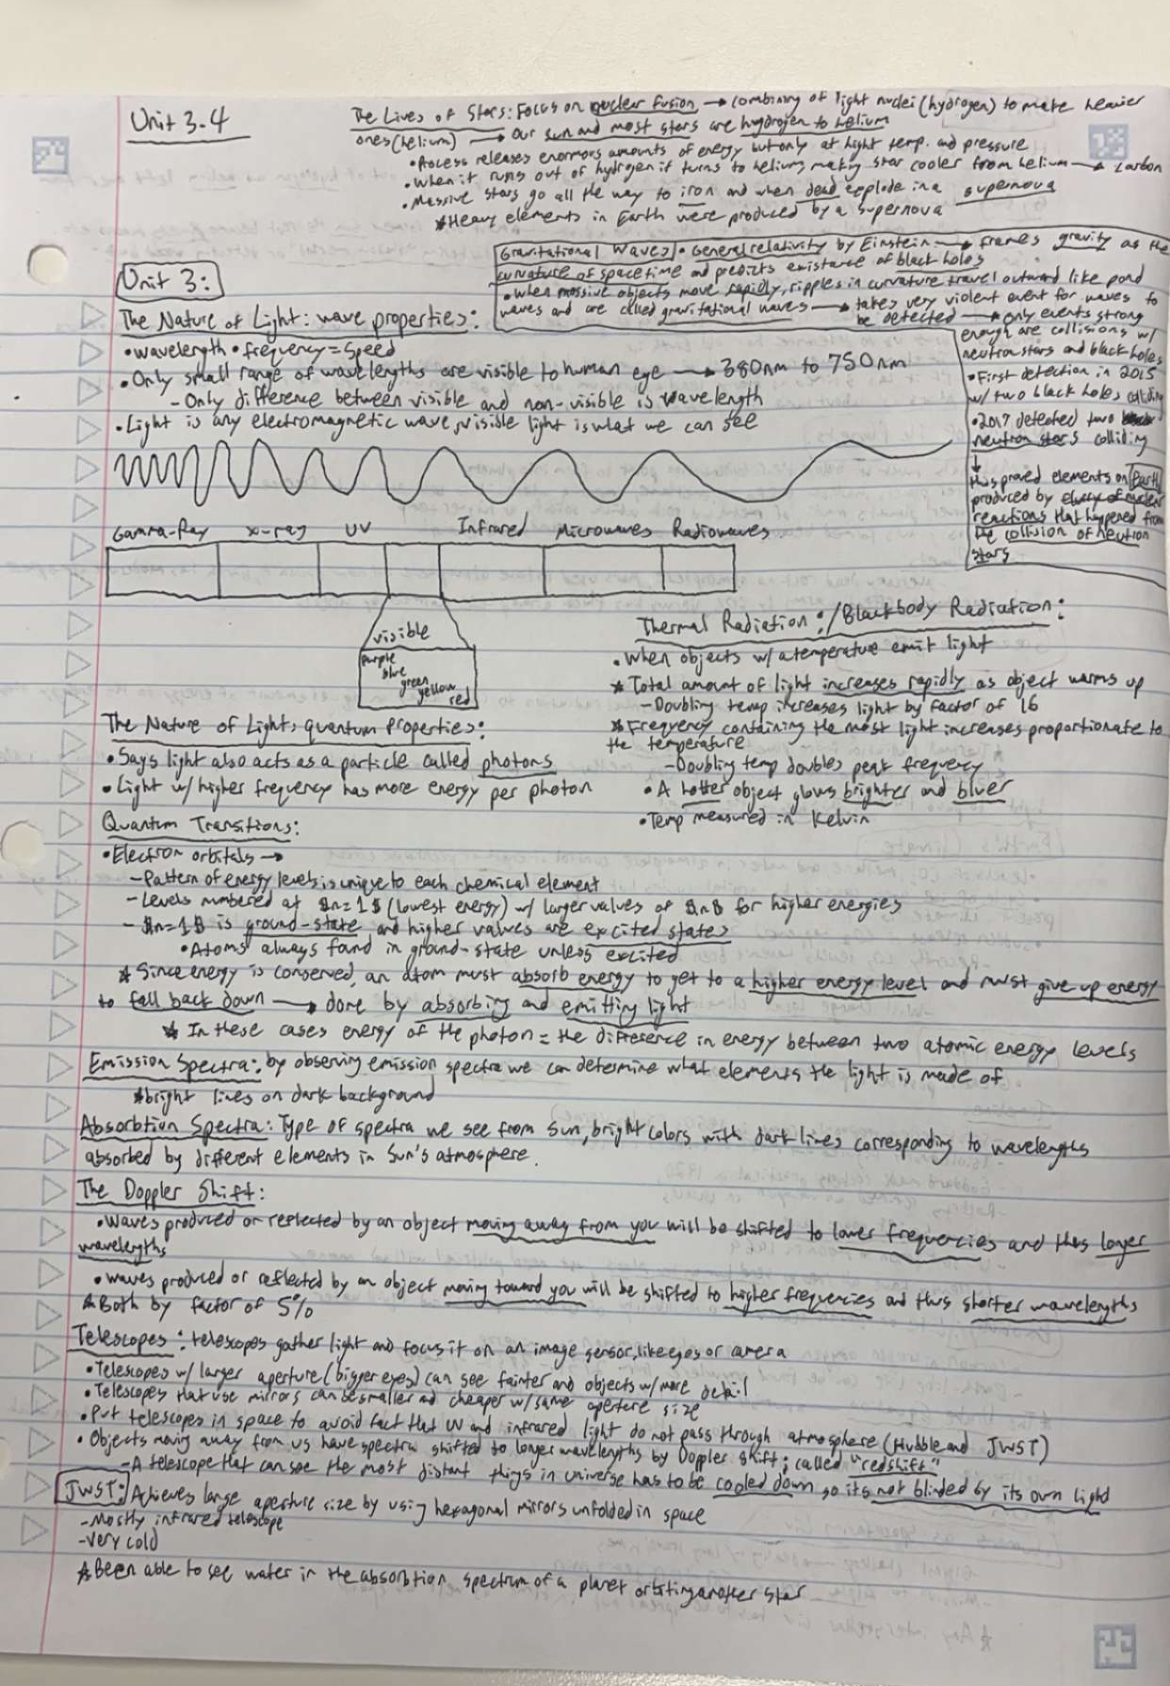 Unit 3.4
The Lives of Stars: Focus on nuclear fusion → combining of light nuclei (hydrogen) to make heavier
ones (helium) → Our sun and most stars are hydrogen to helium
• Process releases enormous amounts of energy but only at hight temp. and pressure
• When it runs out of hydrogen it turns to helium, making star cooler from helium → carbon
• Massive stars go all the way to iron and when dead explode in a supernova
* Heavy elements in Earth were produced by a supernova
Gravitational Waves • General relativity by Einstein → frames gravity as the
curvature of spacetime and predicts existance of black holes
• When massive objects move rapidly, ripples in curvature travel outward like pond
waves and are called gravitational waves → takes very violent event for waves to
be detected → only events strong
enough are collisions w/
neutron stars and black holes
• First detection in 2015
w/ two black holes colliding
• 2017 detected two
neutron stars colliding
↓
this proved elements on Earth
produced by
reactions that happened from
the collision of neutron
stars
Unit 3:
The Nature of Light: wave properties:
• wavelength • frequency = speed
• Only small range of wavelengths are visible to human eye → 380nm to 750nm
- Only difference between visible and non-visible is wavelength
• Light is any electromagnetic wave, visible light is what we can see
Gamma-Ray x-ray UV Infrared Microwaves Radiowaves
visible
purple
blue
green
yellow
red
Thermal Radiation: / Blackbody Radiation:
• When objects w/ a temperature emit light
* Total amount of light increases rapidly as object warms up
- Doubling temp increases light by factor of 16
* Frequency containing the most light increases proportionate to
the temperature
- Doubling temp doubles peak frequency
• A hotter object glows brighter and bluer
• Temp measured in Kelvin
The Nature of Light: quantum Properties:
• Says light also acts as a particle called photons
• Light w/ higher frequency has more energy per photon
Quantum Transitions:
• Electron orbitals →
- Pattern of energy levels is unique to each chemical element
- Levels numbered at $n=1$ (lowest energy) w/ larger values of $n$ for higher energies
- $n=1$ is ground-state and higher values are excited states
• Atoms always found in ground-state unless excited
* Since energy is conserved, an atom must absorb energy to get to a higher energy level and must give up energy
to fall back down → done by absorbing and emitting light
* In these cases energy of the photon = the difference in energy between two atomic energy levels
Emission Spectra: by observing emission spectra we can determine what elements the light is made of
* bright lines on dark background
Absorbtion Spectra: Type of spectra we see from Sun, bright colors with dark lines corresponding to wavelengths
absorbed by different elements in Sun's atmosphere.
The Doppler Shift:
• Waves produced or reflected by an object moving away from you will be shifted to lower frequencies and thus longer
wavelengths
• waves produced or reflected by an object moving toward you will be shifted to higher frequencies and thus shorter wavelengths
* Both by factor of 5%
Telescopes: telescopes gather light and focus it on an image sensor, like eyes or camera
• Telescopes w/ larger aperture (bigger eyes) can see fainter and objects w/ more detail
• Telescopes that use mirrors can be smaller and cheaper w/ same aperture size
• Put telescopes in space to avoid fact that UV and infrared light do not pass through atmosphere (Hubble and JWST)
• Objects moving away from us have spectra shifted to longer wavelengths by Doppler shift; called "redshift"
- A telescope that can see the most distant things in universe has to be cooled down so its not blinded by its own light
JWST: Achieves large aperture size by using hexagonal mirrors unfolded in space
- Mostly infrared telescope
- very cold
* Been able to see water in the absorbtion spectrum of a planet orbiting another star